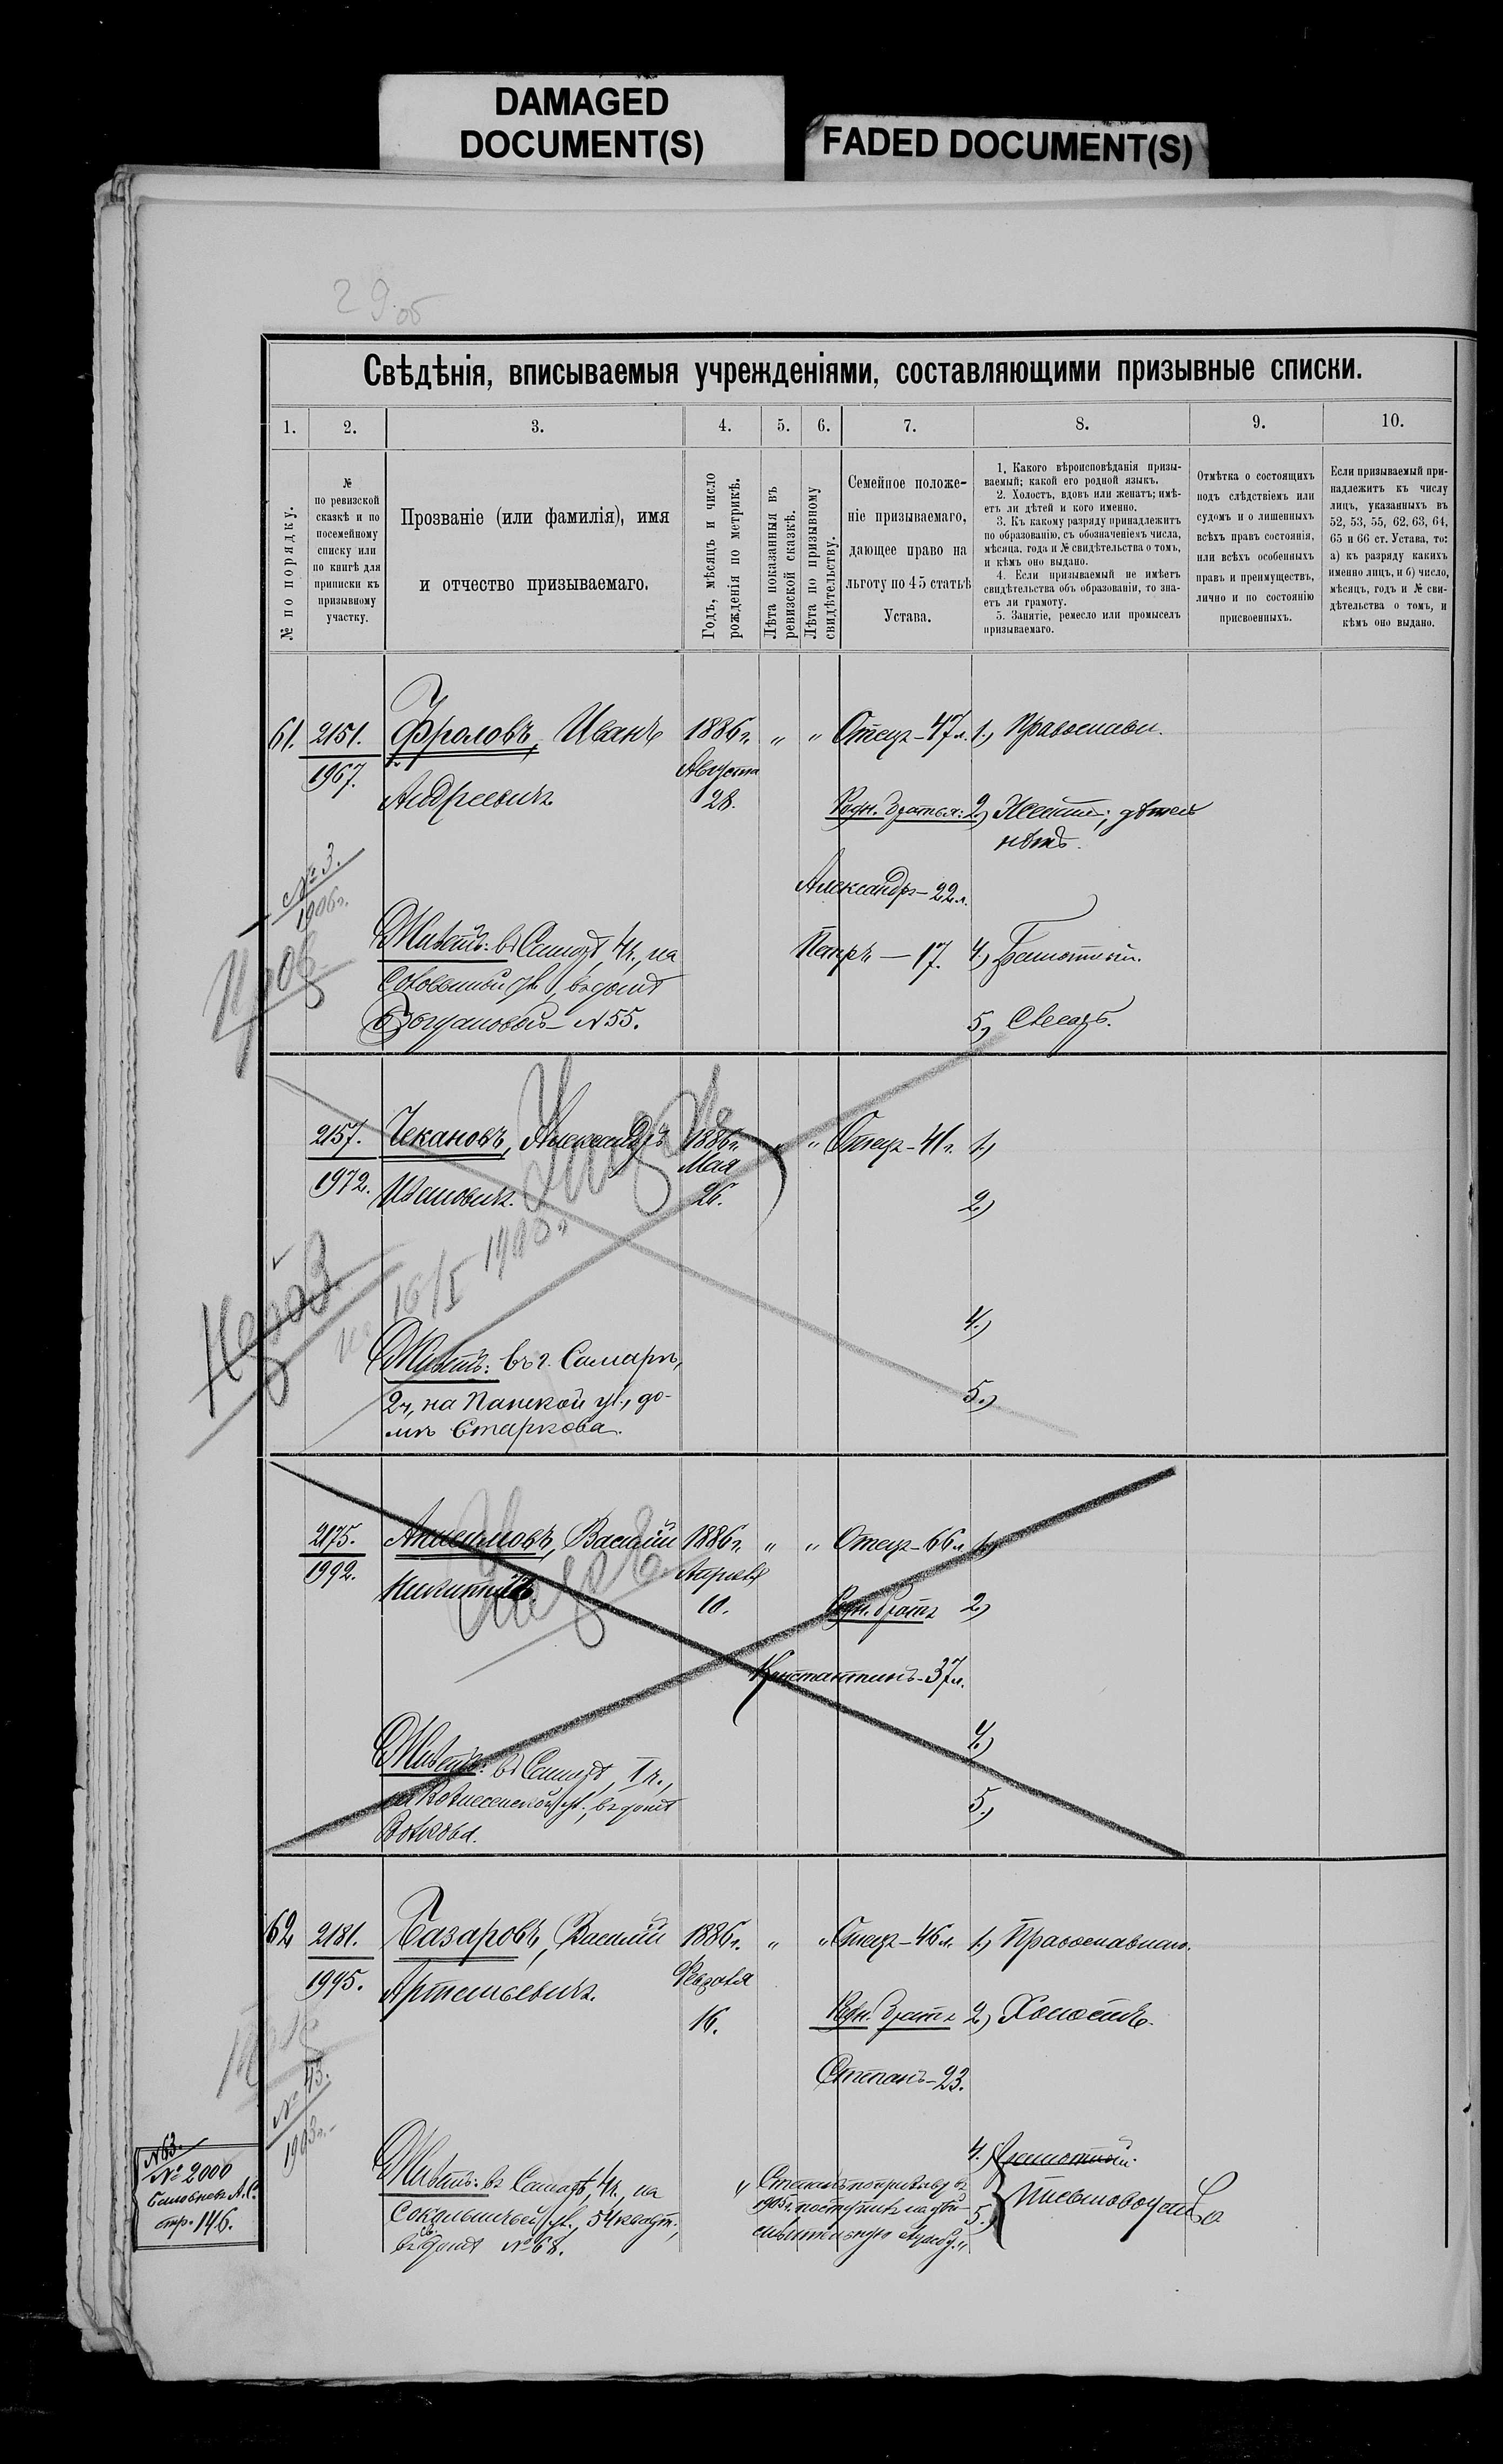 DAMAGED
DOCUMENT(S)
FADED DOCUMENT(S)
29 об
Свѣдѣнія, вписываемыя учрежденіями, составляющими призывные списки.
1. 2. 3. 4. 5. 6. 7. 8. 9. 10.
№ по порядку.
№
по ревизской
сказкѣ и по
посемейному
списку или
по книгѣ для
приписки къ
призывному
участку.
Прозваніе (или фамилія), имя
и отчество призываемаго.
Годъ, мѣсяцъ и число
рожденія по метрикѣ.
Лѣта показанныя въ
ревизской сказкѣ.
Лѣта по призывному
свидѣтельству.
Семейное положе-
ніе призываемаго,
дающее право на
льготу по 45 статьѣ
Устава.
1. Какого вѣроисповѣданія призы-
ваемый; какой его родной языкъ.
2. Холостъ, вдовъ или женатъ; имѣ-
етъ ли дѣтей и кого именно.
3. Къ какому разряду принадлежитъ
по образованію, съ обозначеніемъ числа,
мѣсяца, года и № свидѣтельства о томъ,
и кѣмъ оно выдано.
4. Если призываемый не имѣетъ
свидѣтельства объ образованіи, то зна-
етъ ли грамоту.
5. Занятіе, ремесло или промыселъ
призываемаго.
Отмѣтка о состоящихъ
подъ слѣдствіемъ или
судомъ и о лишенныхъ
всѣхъ правъ состоянія,
или всѣхъ особенныхъ
правъ и преимуществъ,
лично и по состоянію
присвоенныхъ.
Если призываемый при-
надлежитъ къ числу
лицъ, указанныхъ въ
52, 53, 55, 62, 63, 64,
65 и 66 ст. Устава, то:
а) къ разряду какихъ
именно лицъ, и б) число,
мѣсяцъ, годъ и № сви-
дѣтельства о томъ, и
кѣмъ оно выдано.
61. 2151. Фроловъ, Иванъ 1886 г. " " Отецъ-47 л. 1.) Православн.
1967. Андреевичъ Августа
28. Родн. братья: 2.) Женатъ; дѣтей
нѣтъ.
№ 3.
1906 г.
Александръ-22 л.
Живетъ: въ Самарѣ, 4 ч., на Петръ-17. 4.) Грамотный.
ул., въ домѣ
Богдановой-N 55. 5.) Слесарь.
2157. Чекановъ, Александръ 1886 г. " " Отецъ-41 г. 1.)
1972. Ивановичъ. Мая
26. 2.)
16/I
4.)
Живетъ: въ г. Самарѣ,
2 ч, на Панской ул., до- 5.)
мъ Старкова.
2175. Анисимовъ, Василій 1886 г. " " Отецъ-66 л. 1.)
1992. Никитичъ Апрѣля
10. Родн. братъ 2.)
Константинъ-37 л.
4.)
Живетъ: въ Самарѣ, 1 ч.,
на Вознесенской ул., въ домѣ 5.)
Волкова.
62 2181. Базаровъ, Василій 1886 г. " " Отецъ-46 л. 1.) Православнаго.
1995. Артемьевичъ. Февраля
16. Родн. братъ 2.) Холостъ.
Степанъ-23.
№ 43.
1903 г.
4. Грамотный.
N 63.
№ 2000
стр. 146.
Живетъ: въ Самарѣ, 4 ч., на
Сокольничьей ул., 54 кварт.,
въ домѣ № 68.
" Степанъ по призыву въ
1905 г. поступилъ на дѣй-
ствительную службу. "
5.) Письмоводство